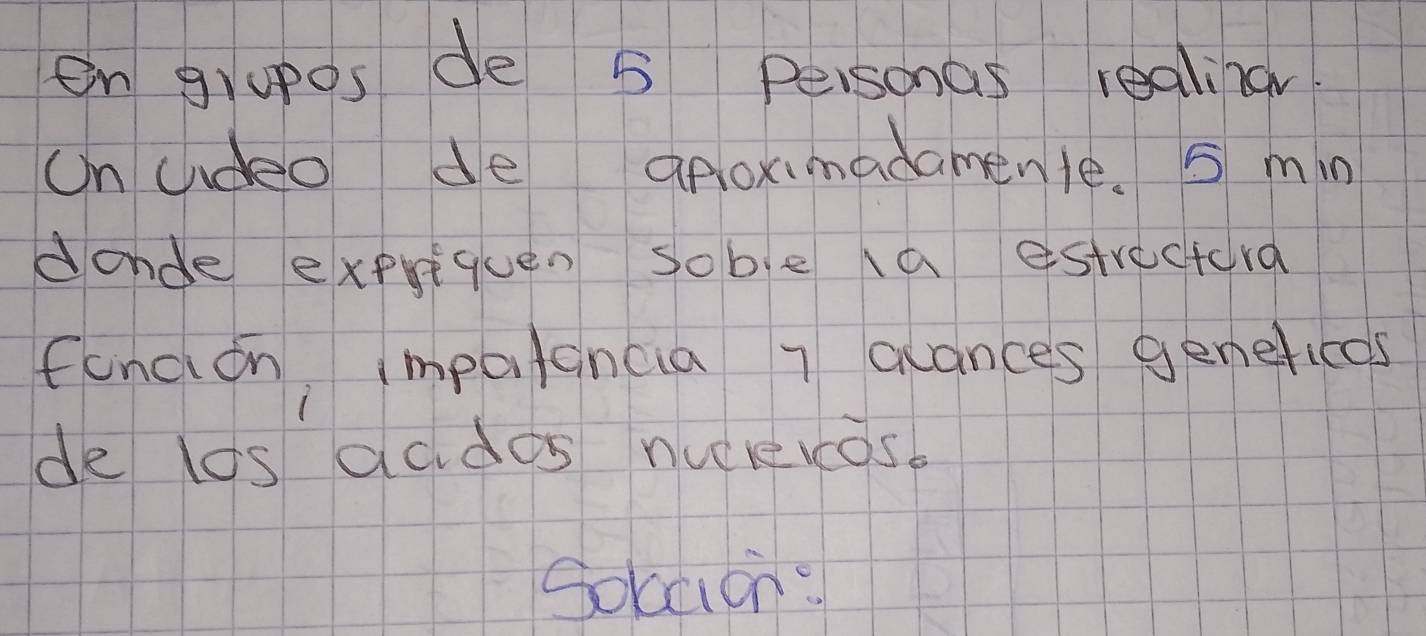 en grupos de 5 Personas realizar.
Un video de aproximadamente. 5 min
donde expliquen sobre la estructura
función, importancia y avances geneticos
de los acidos nucleicos.
Solución: